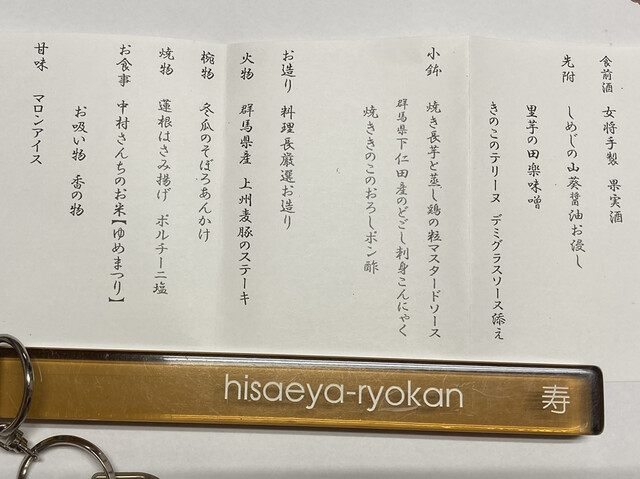 食前酒 女将手製 果実酒
先附 しめじの山葵醤油お浸し
里芋の田楽味噌
きのこのテリーヌ デミグラスソース添え
小鉢 焼き長芋と蒸し鶏の粒マスタードソース
群馬県下仁田産のどごし刺身こんにゃく
焼ききのこのおろしポン酢
お造り 料理長厳選お造り
火物 群馬県産 上州麦豚のステーキ
椀物 冬瓜のそぼろあんかけ
焼物 蓮根はさみ揚げ ポルチーニ塩
お食事 中村さんちのお米【ゆめまつり】
お吸い物 香の物
甘味 マロンアイス
hisaeya-ryokan 寿